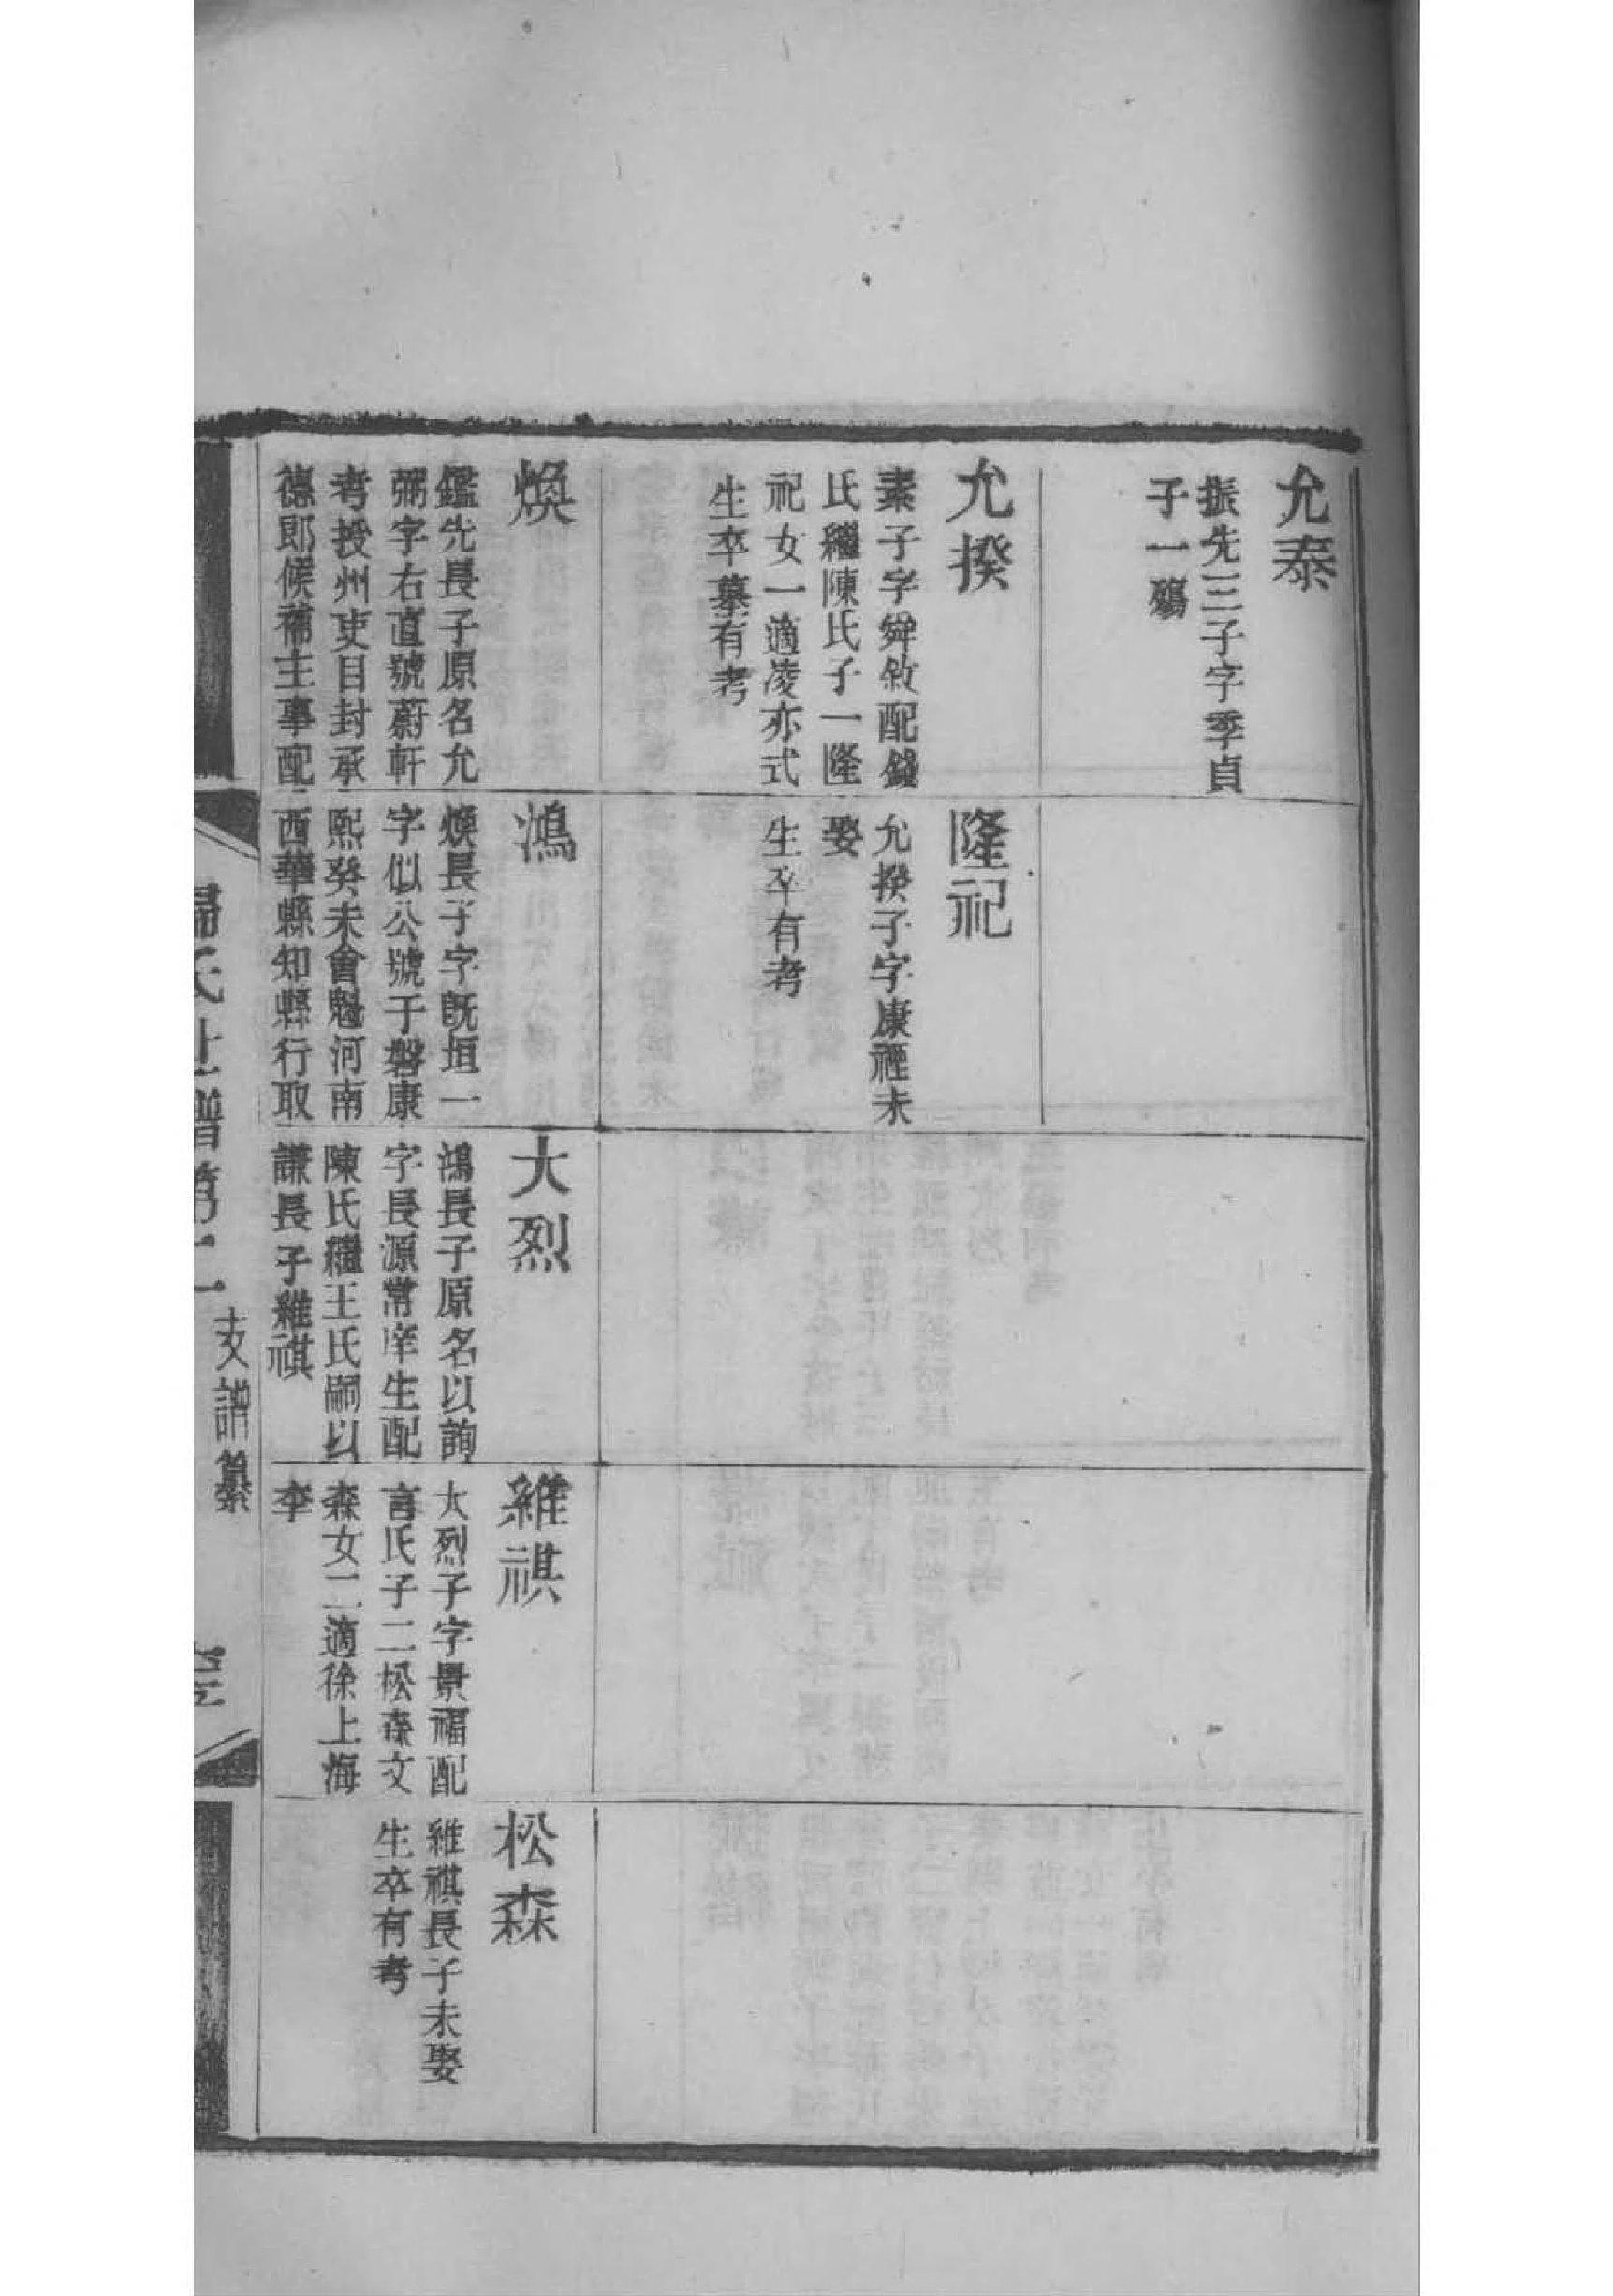 允泰
振先三子字季貞
子一殤
允揆
素子字舜敘配錢
氏繼陳氏子一隆
祀女一適凌亦式
生卒墓有考
煥
鑑先長子原名允
弼字右直號蔚軒
考授州吏目封承
德郎候補主事配
隆祀
允揆子字康禋未
娶
生卒有考
鴻
煥長子字旣垣一
字似公號于磐康
熙癸未會魁河南
西華縣知縣行取
大烈
鴻長子原名以詢
字長源常庠生配
陳氏繼王氏嗣以
謙長子維祺
維祺
大烈子字景福配
言氏子二松森文
森女二適徐上海
李
松森
維祺長子未娶
生卒有考
歸氏世譜第二
支譜纂